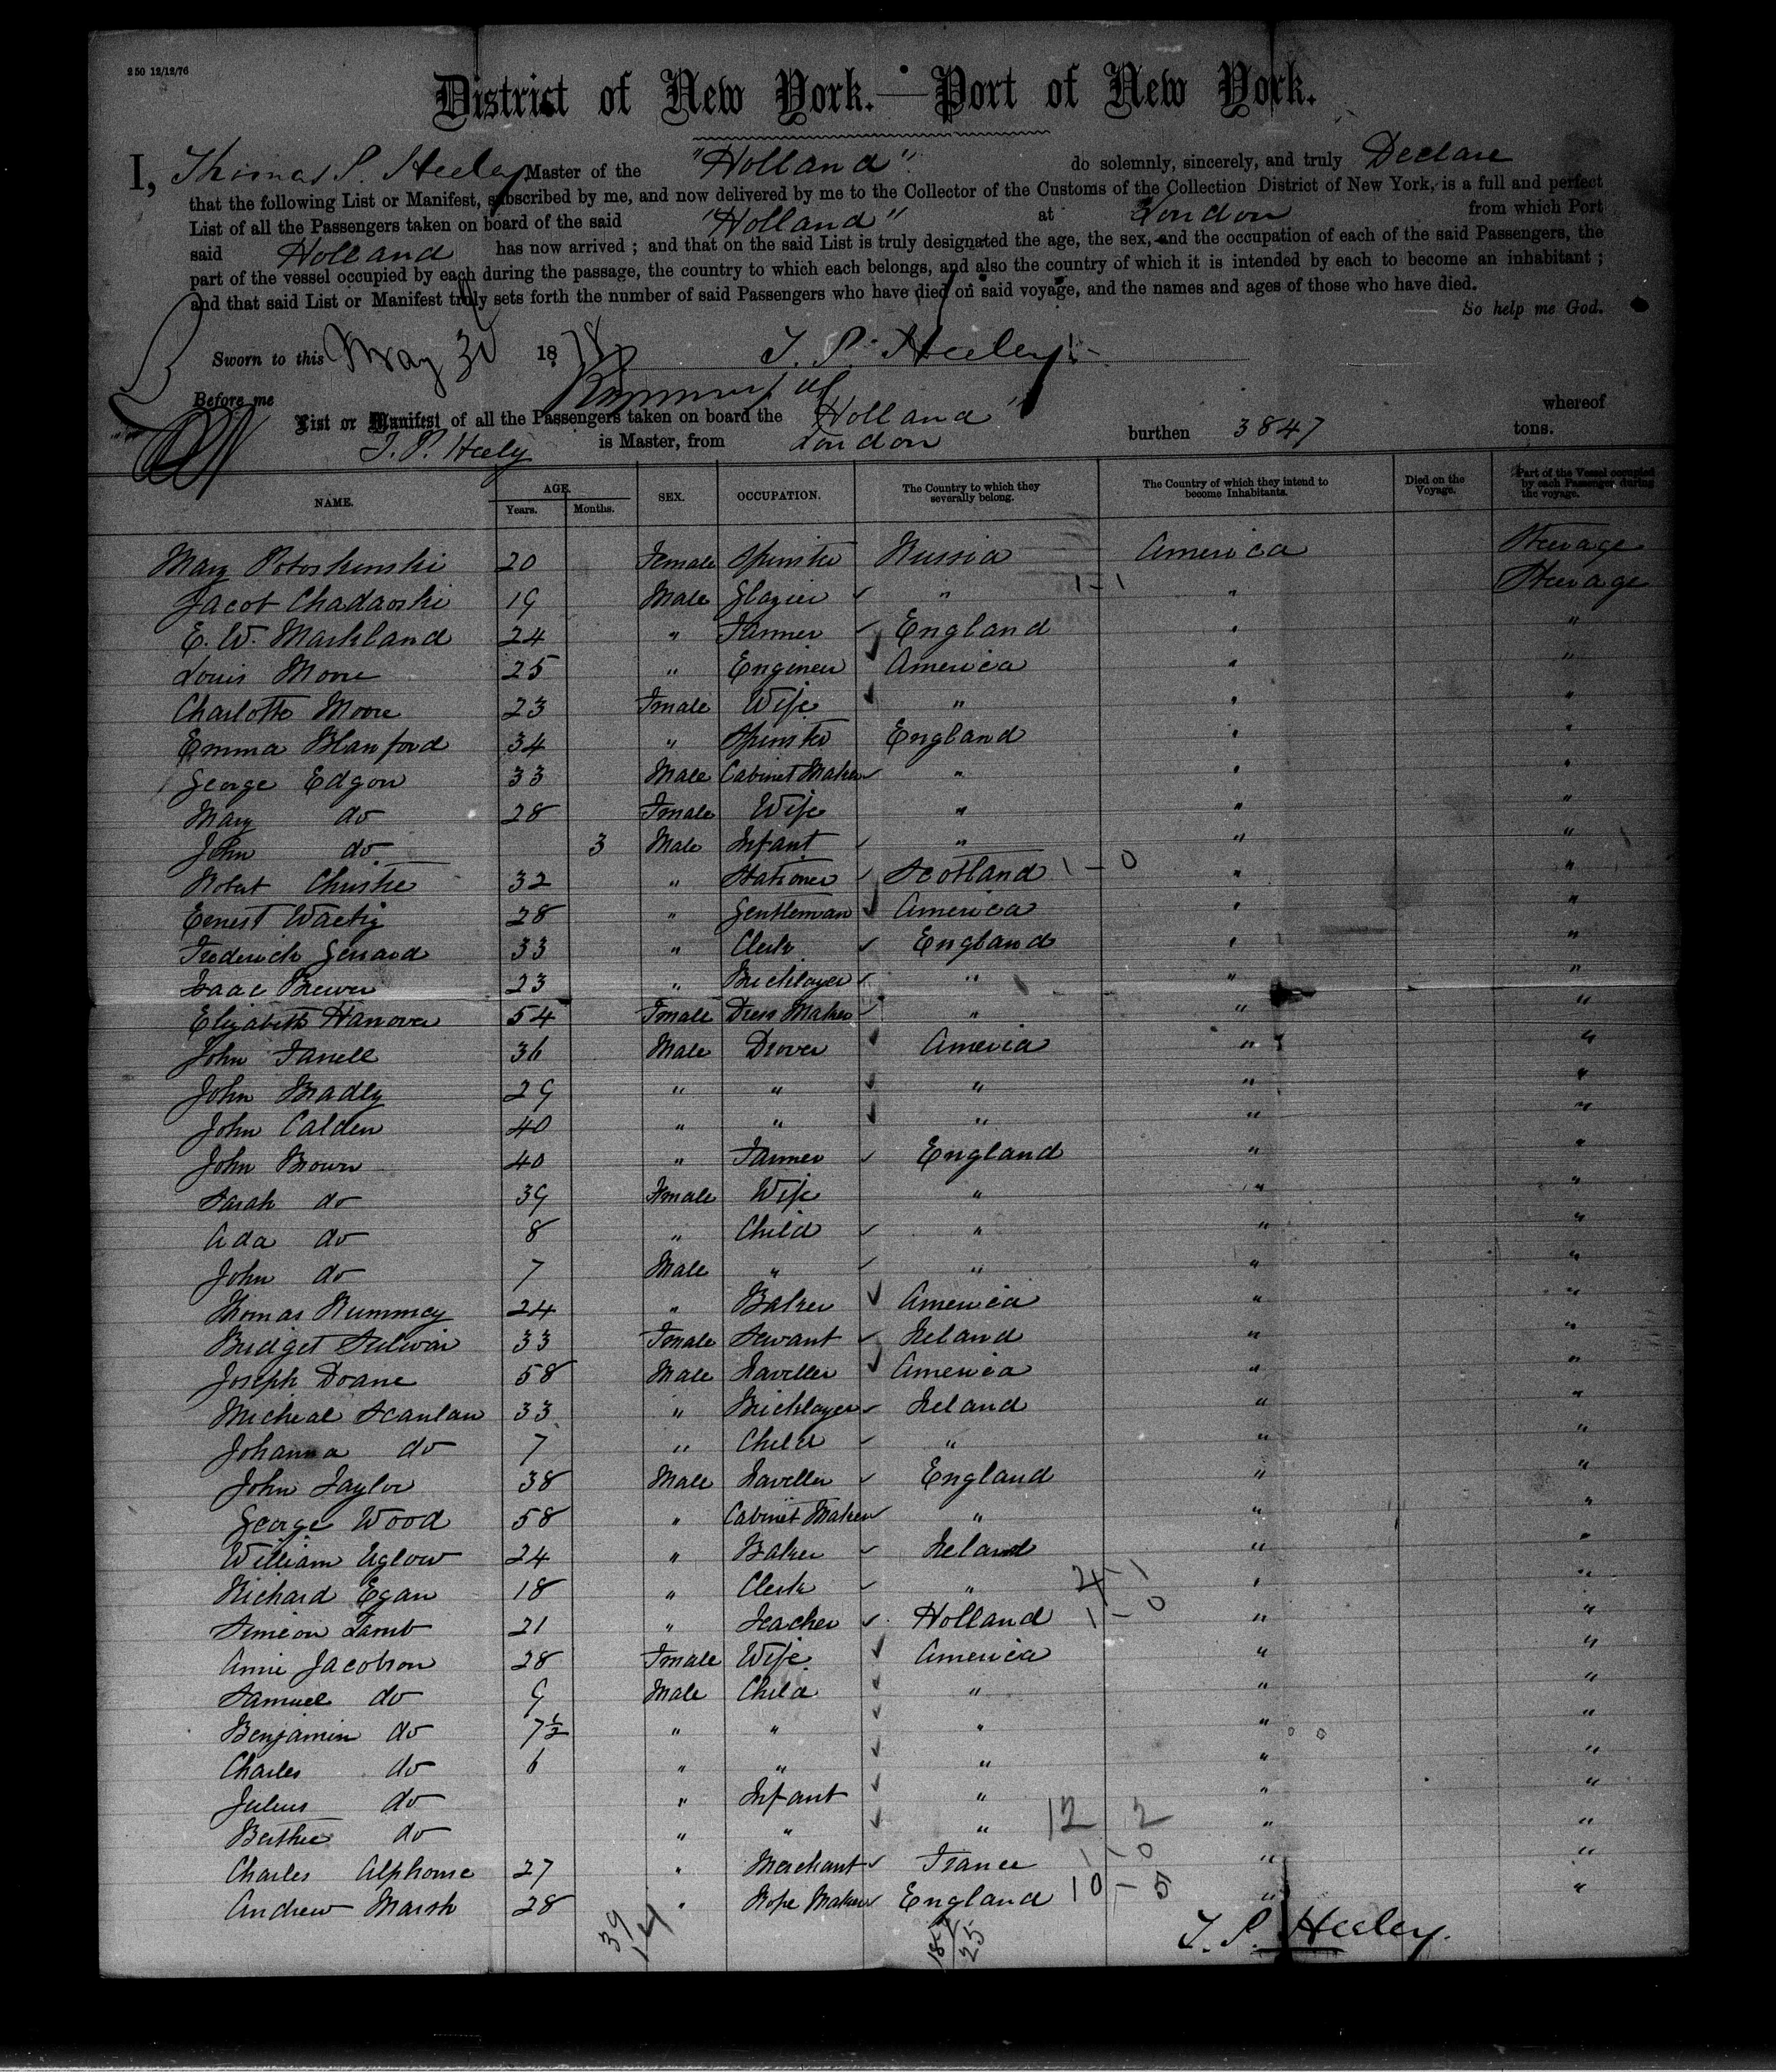 250 12/12/76
District of New York.—Port of New York.
I, Thomas P. Heeley Master of the "Holland" do solemnly, sincerely, and truly Declare
that the following List or Manifest, subscribed by me, and now delivered by me to the Collector of the Customs of the Collection District of New York, is a full and perfect
List of all the Passengers taken on board of the said "Holland" at London from which Port
said Holland has now arrived ; and that on the said List is truly designated the age, the sex, and the occupation of each of the said Passengers, the
part of the vessel occupied by each during the passage, the country to which each belongs, and also the country of which it is intended by each to become an inhabitant ;
and that said List or Manifest truly sets forth the number of said Passengers who have died on said voyage, and the names and ages of those who have died.
So help me God.
Sworn to this May 30 1878 T. P. Heeley
Before me
List or Manifest of all the Passengers taken on board the Holland" whereof
T. P. Heely is Master, from London burthen 3847 tons.
NAME. AGE. Years. Months. SEX. OCCUPATION. The Country to which they severally belong. The Country of which they intend to become Inhabitants. Died on the Voyage. Part of the Vessel occupied by each Passenger during the voyage.
Mary Potoshinski 20 Female Spinster Russia America Steerage
Jacob Chadaoski 19 Male Glazier " 1-1 " Steerage
E. W. Markland 24 " Farmer England " "
Louis Moore 25 " Engineer America " "
Charlotte Moore 23 Female Wife " " "
Emma Blanford 34 " Spinster England " "
George Edgon 33 Male Cabinet Maker " " "
Mary do 28 Female Wife " " "
John do 3 Male Infant " " "
Robert Christie 32 " Stationer Scotland 1-0 " "
Ernest Waetig 28 " Gentleman America " "
Frederick Gerrard 33 " Clerk England " "
Isaac Brewer 23 " Bricklayer " " "
Elizabeth Hanover 54 Female Dress Maker " " "
John Farrell 36 Male Drover America " "
John Bradly 29 " " " " "
John Calden 40 " " " " "
John Brown 40 " Farmer England " "
Sarah do 39 Female Wife " " "
Ada do 8 " Child " " "
John do 7 Male " " " "
Thomas Rummey 24 " Baker America " "
Bridget 33 Female Servant Ireland " "
Joseph Doane 58 Male Traveller America " "
Micheal Scanlan 33 " Bricklayer Ireland " "
Johanna do 7 " Child " " "
John Taylor 38 Male Traveller England " "
George Wood 58 " Cabinet Maker " " "
William Uglow 24 " Baker Ireland " "
Richard Egan 18 " Clerk " 4-1 " "
Simeon Lamb 21 " Teacher Holland 1-0 " "
Annie Jacobson 28 Female Wife America " "
Samuel do 9 Male Child " " "
Benjamin do 7½ " " " " "
Charles do 6 " " " " "
Julius do " Infant " " "
Berthee do " " " 12 2 " "
Charles Alphonse 27 " Merchant France 1-0 " "
Andrew Marsh 28 " Rope Maker England 10-5 " "
39
14
25
T. P. Heeley.